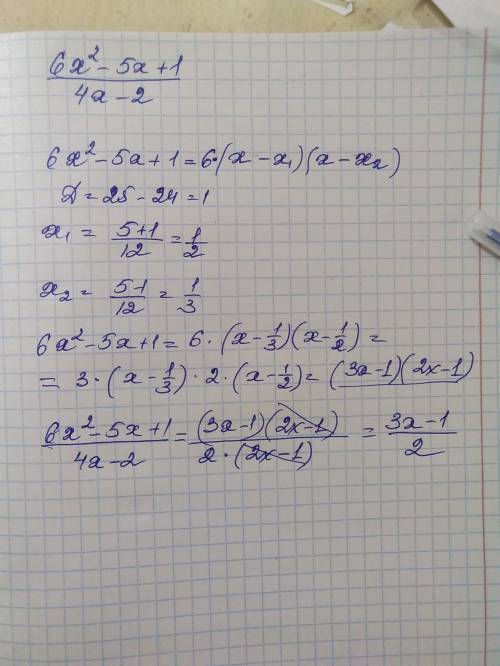 6x² - 5x + 1
4x - 2
6x² - 5x + 1 = 6·(x - x₁)(x - x₂)
D = 25 - 24 = 1
x₁ = (5+1)/12 = 1/2
x₂ = (5-1)/12 = 1/3
6x² - 5x + 1 = 6·(x - 1/3)(x - 1/2) =
= 3·(x - 1/3)·2·(x - 1/2) = (3x-1)(2x-1)
(6x² - 5x + 1)/(4x - 2) = (3x-1)(2x-1)/(2·(2x-1)) = (3x-1)/2